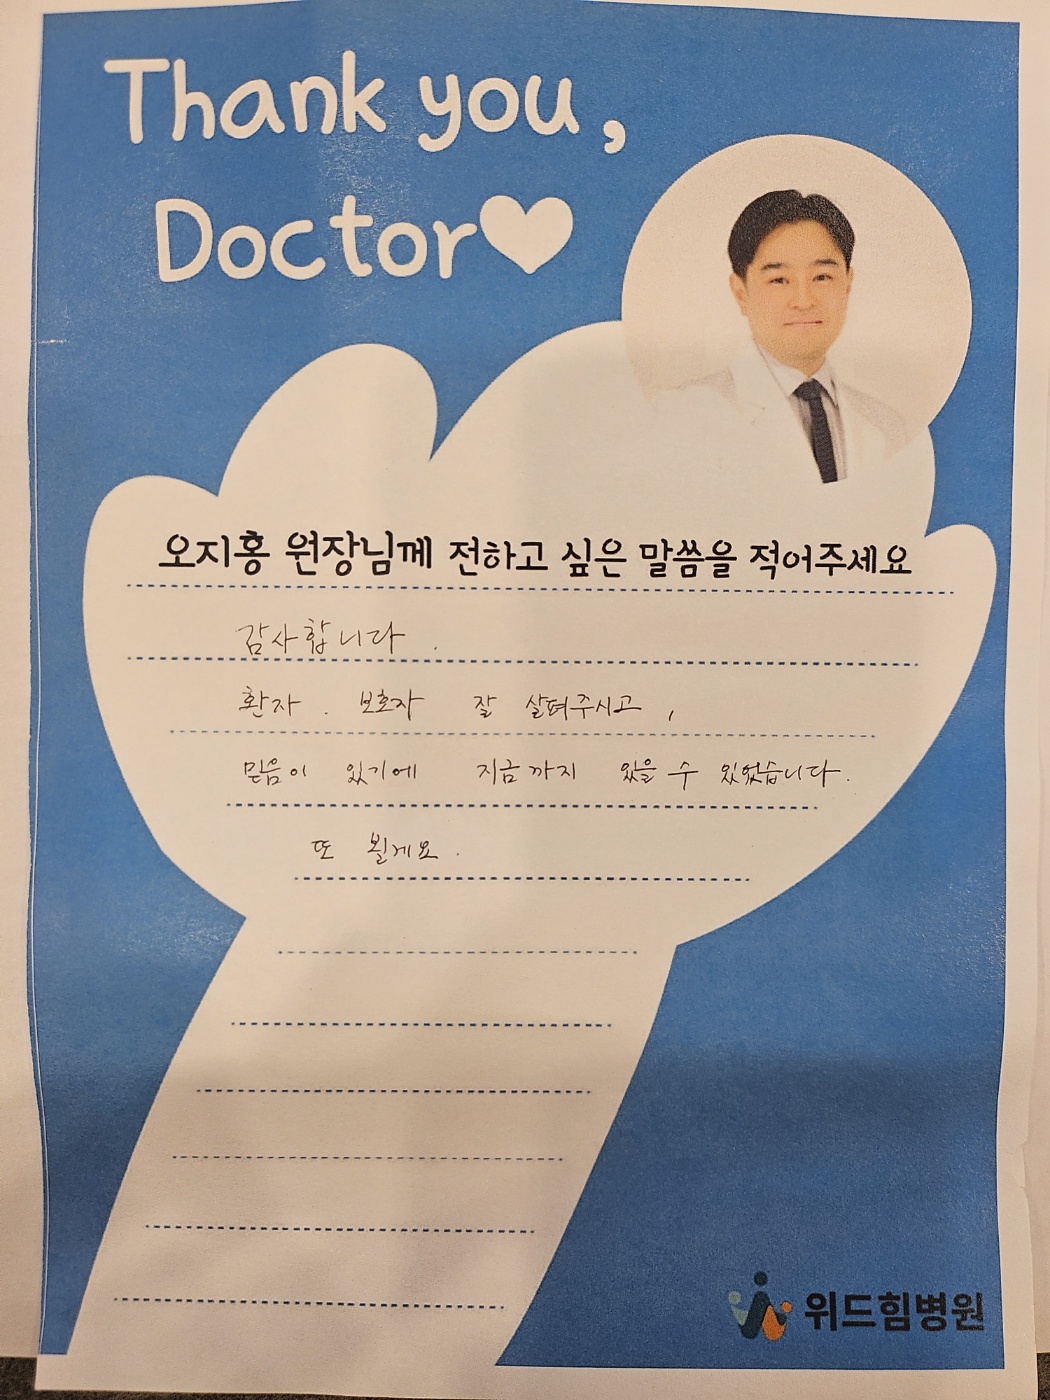 Thank you,
Doctor♥
오지홍 원장님께 전하고 싶은 말씀을 적어주세요
감사합니다.
환자. 보호자 잘 살펴주시고,
믿음이 있기에 지금까지 있을 수 있었습니다.
또 뵐게요.
위드힘병원